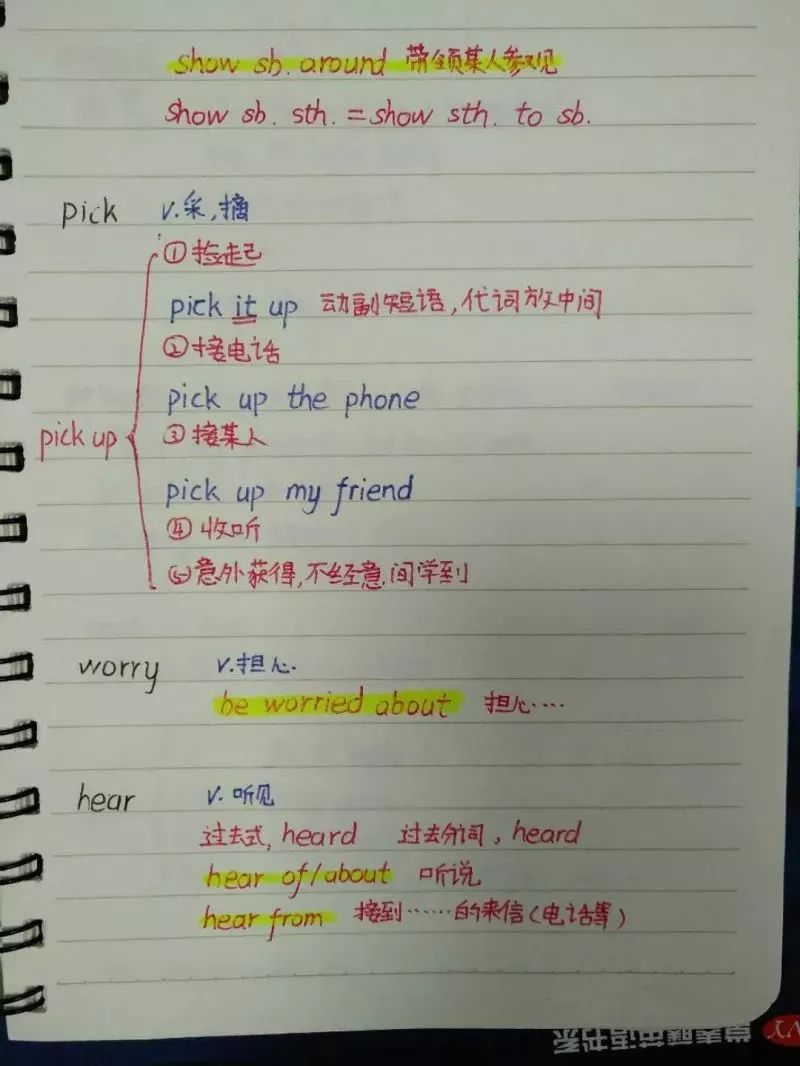 show sb. around 带领某人参观
show sb. sth. = show sth. to sb.
pick v.采,摘
①捡起
pick it up 动副短语,代词放中间
②接电话
pick up the phone
pick up ③接某人
pick up my friend
④收听
⑤意外获得,不经意间学到
worry v.担心.
be worried about 担心……
hear v. 听见
过去式, heard 过去分词, heard
hear of/about 听说
hear from 接到……的来信(电话等)